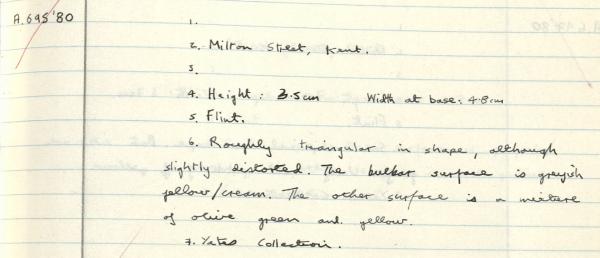 A.695'80
1.
2. Milton Street, Kent.
3.
4. Height: 3.5cm Width at base: 4.8cm
5. Flint.
6. Roughly triangular in shape, although
slightly distorted. The bulbar surface is greyish
yellow/cream. The other surface is a mixture
of olive green and yellow.
7. Yates Collection.